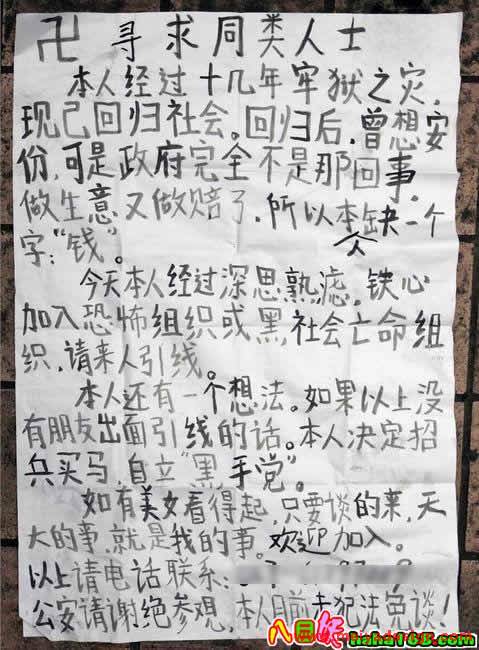 卍寻求同类人士
本人经过十几年牢狱之灾,
现已回归社会。回归后,曾想安
份,可是政府完全不是那回事。
做生意又做赔了,所以本人缺一个
字:“钱”。
今天本人经过深思熟滤,铁心
加入恐怖组织或黑社会亡命组
织,请来人引线。
本人还有一个想法。如果以上没
有朋友出面引线的话。本人决定招
兵买马,自立“黑手党”。
如有美女看得起,只要谈的来,天
大的事,就是我的事。欢迎加入。
以上请电话联系:
公安请谢绝参观,本人目前未犯法免谈!
haha168.com